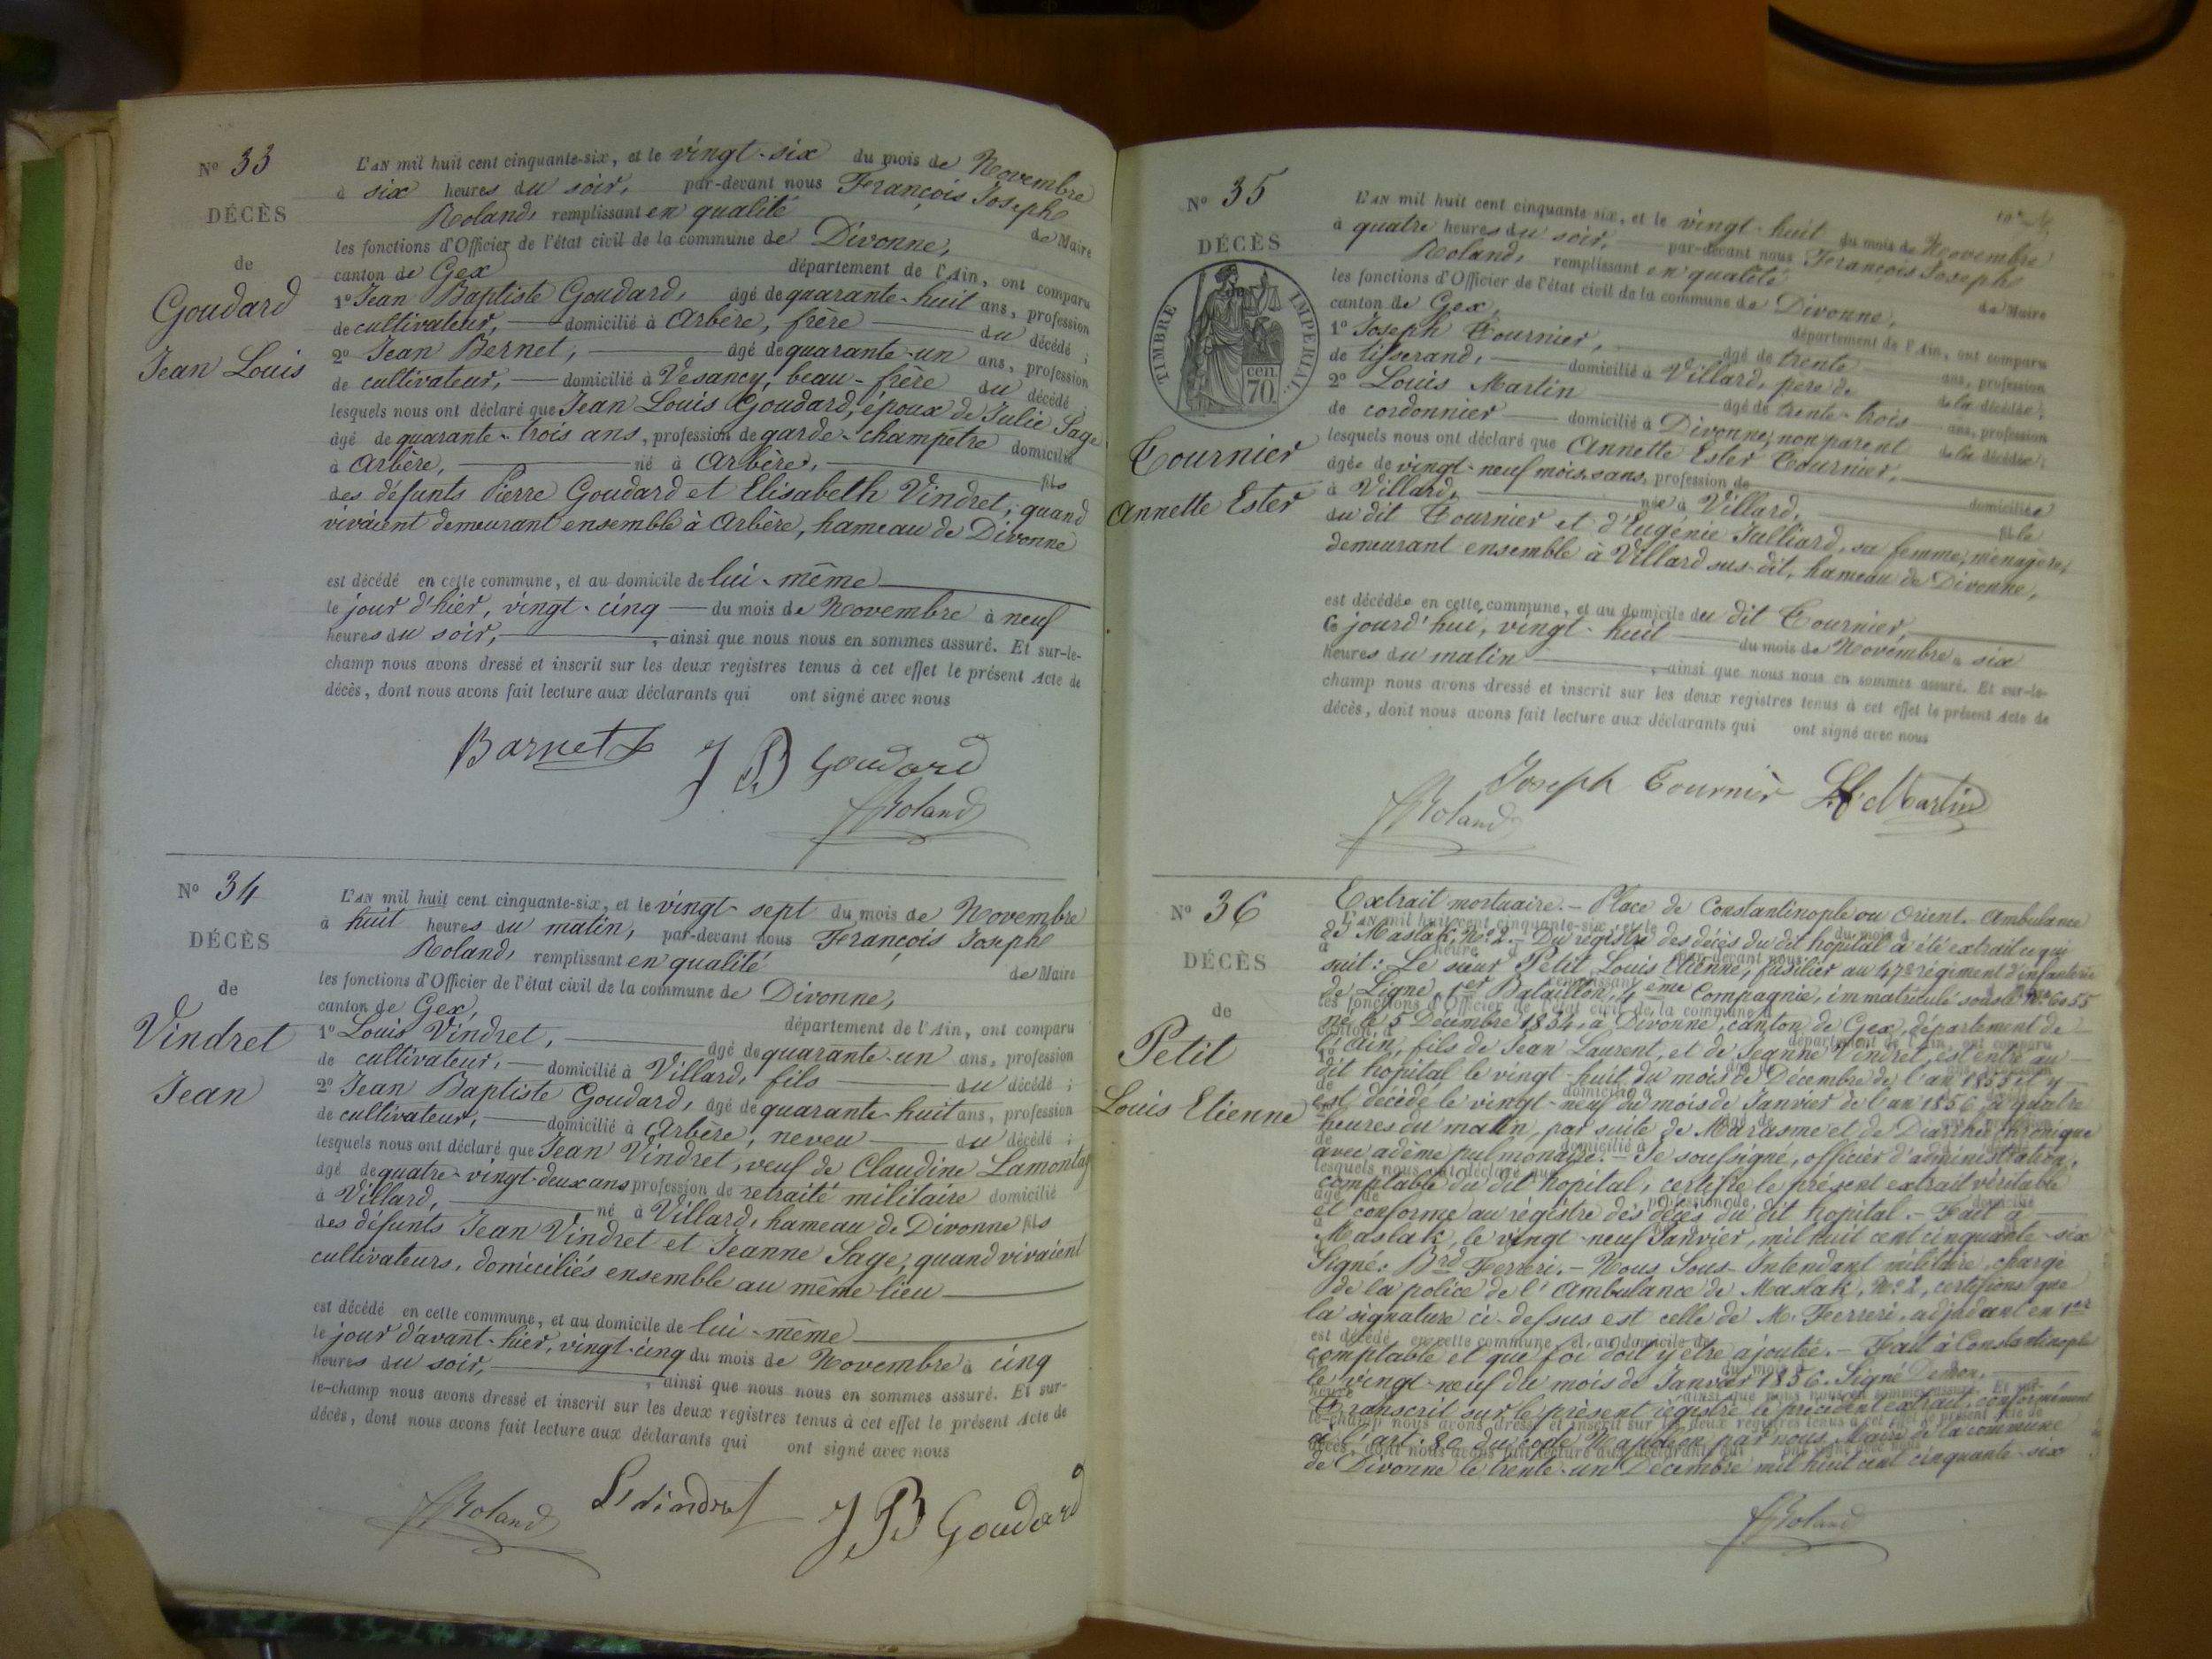 Nº 33
DÉCÈS
de
Goudard
Jean Louis
L'AN mil huit cent cinquante-six, et le vingt-six du mois de Novembre
à six heures du soir, par-devant nous François Joseph
Roland, remplissant en qualité de Maire
les fonctions d'Officier de l'état civil de la commune de Divonne,
canton de Gex département de l'Ain, ont comparu
1º Jean Baptiste Goudard, âgé de quarante-huit ans, profession
de cultivateur, domicilié à Arbère, frère du décédé ;
2º Jean Bernet, âgé de quarante-un ans, profession
de cultivateur, domicilié à Vesancy, beau-frère du décédé
lesquels nous ont déclaré que Jean Louis Goudard, époux de Julie Sage
âgé de quarante-trois ans, profession de garde-champêtre domicilié
à Arbère, né à Arbère, fils
des défunts Pierre Goudard et Elisabeth Vindret, quand
vivaient demeurant ensemble à Arbère, hameau de Divonne
est décédé en cette commune, et au domicile de lui-même
le jour d'hier, vingt-cinq du mois de Novembre à neuf
heures du soir, , ainsi que nous nous en sommes assuré. Et sur-le-
champ nous avons dressé et inscrit sur les deux registres tenus à cet effet le présent Acte de
décès, dont nous avons fait lecture aux déclarants qui ont signé avec nous
Barnet J B Goudard
Roland
Nº 34
DÉCÈS
de
Vindret
Jean
L'AN mil huit cent cinquante-six, et le vingt-sept du mois de Novembre
à huit heures du matin, par-devant nous François Joseph
Roland, remplissant en qualité de Maire
les fonctions d'Officier de l'état civil de la commune de Divonne,
canton de Gex, département de l'Ain, ont comparu
1º Louis Vindret, âgé de quarante-un ans, profession
de cultivateur, domicilié à Villard, fils du décédé ;
2º Jean Baptiste Goudard, âgé de quarante-huit ans, profession
de cultivateur, domicilié à Arbère, neveu du décédé ;
lesquels nous ont déclaré que Jean Vindret, veuf de Claudine Lamontag
âgé de quatre-vingt-deux ans profession de retraité militaire domicilié
à Villard, né à Villard, hameau de Divonne fils
des défunts Jean Vindret et Jeanne Sage, quand vivaient
cultivateurs, domiciliés ensemble au même lieu
est décédé en cette commune, et au domicile de lui-même
le jour d'avant-hier, vingt-cinq du mois de Novembre à cinq
heures du soir, , ainsi que nous nous en sommes assuré. Et sur-
le-champ nous avons dressé et inscrit sur les deux registres tenus à cet effet le présent Acte de
décès, dont nous avons fait lecture aux déclarants qui ont signé avec nous
Roland L Vindret J B Goudard
Nº 35
DÉCÈS
TIMBRE IMPÉRIAL
cen.
70
Tournier
Annette Ester
L'AN mil huit cent cinquante six, et le vingt-huit du mois de Novembre
à quatre heures du soir, par-devant nous François Joseph
Roland, remplissant en qualité de Maire
les fonctions d'Officier de l'état civil de la commune de Divonne,
canton de Gex, département de l'Ain, ont comparu
1º Joseph Tournier, âgé de trente ans, profession
de tisserand, domicilié à Villard, père de de la décédée ;
2º Louis Martin âgé de trente-trois ans, profession
de cordonnier domicilié à Divonne, non parent de la décédée ;
lesquels nous ont déclaré que Annette Ester Tournier,
âgée de vingt-neuf mois, sans profession de domiciliée
à Villard, née à Villard, fille
du dit Tournier et d'Eugénie Julliard, sa femme, ménagère,
demeurant ensemble à Villard sus-dit, hameau de Divonne,
est décédée en cette commune, et au domicile du dit Tournier,
ce jourd'hui, vingt-huit du mois de Novembre à six
heures du matin , ainsi que nous nous en sommes assuré. Et sur-le-
champ nous avons dressé et inscrit sur les deux registres tenus à cet effet le présent Acte de
décès, dont nous avons fait lecture aux déclarants qui ont signé avec nous
Joseph Tournier Ls Martin
Roland
Nº 36
DÉCÈS
de
Petit
Louis Etienne
Extrait mortuaire. - Place de Constantinople ou Orient. Ambulance
de Maslak, Nº 2. - Du régistre des décès du dit hopital a été extrait ce qui
suit : Le sieur Petit Louis Etienne, fusilier au 47e régiment d'infanterie
de Ligne, 1er Bataillon, 4ème Compagnie, immatriculé sous le Nº 6055
né le 5 Décembre 1834, à Divonne, canton de Gex, département de
l'Ain, fils de Jean Laurent, et de Jeanne Vindret, est entré au
dit hopital le vingt-huit du mois de Décembre de l'an 1855 et y
est décédé le vingt-neuf du mois de Janvier de l'an 1856 à quatre
heures du matin, par suite de Marasme et de Diarrhée chronique
avec adème pulmonaire. - Je soussigné, officier d'administration,
comptable du dit hopital, certifie le présent extrait véritable
et conforme au régistre des décès du dit hopital. - Fait à
Maslak, le vingt-neuf Janvier, mil huit cent cinquante-six
Signé : Brd Ferreri. - Nous Sous-Intendant militaire, chargé
de la police de l'Ambulance de Maslak, Nº 2, certifions que
la signature ci-dessus est celle de M. Ferreri, adjudant en 1er
comptable et que foi doit y être ajoutée. - Fait à Constantinople
le vingt-neuf du mois de Janvier 1856. Signé
Transcrit sur le présent régistre le précédent extrait, conformément
à l'art. 80 du code Napoléon par nous Maire de la commune
de Divonne le trente-un Décembre mil huit cent cinquante-six
Roland